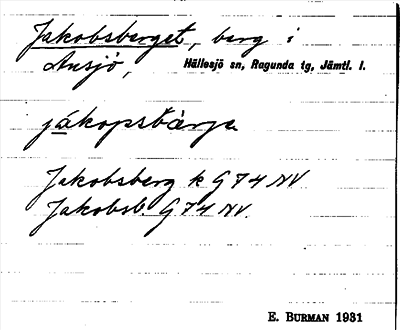 Jakobsberget, berg i
Ansjö, Hällesjö sn, Ragunda tg, Jämtl. l.
jákopsbàrje
Jakobsberg k G 74 NV
Jakobsb. G 74 NV.
E. BURMAN 1931